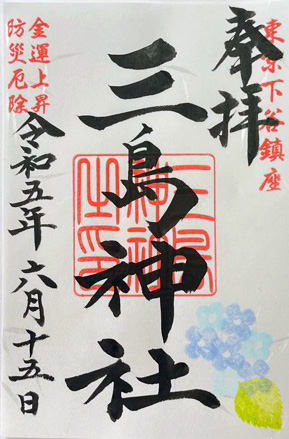 東京下谷鎮座
奉拝
三島神社
三島神社之印
金運上昇
防災厄除
令和五年 六月十五日